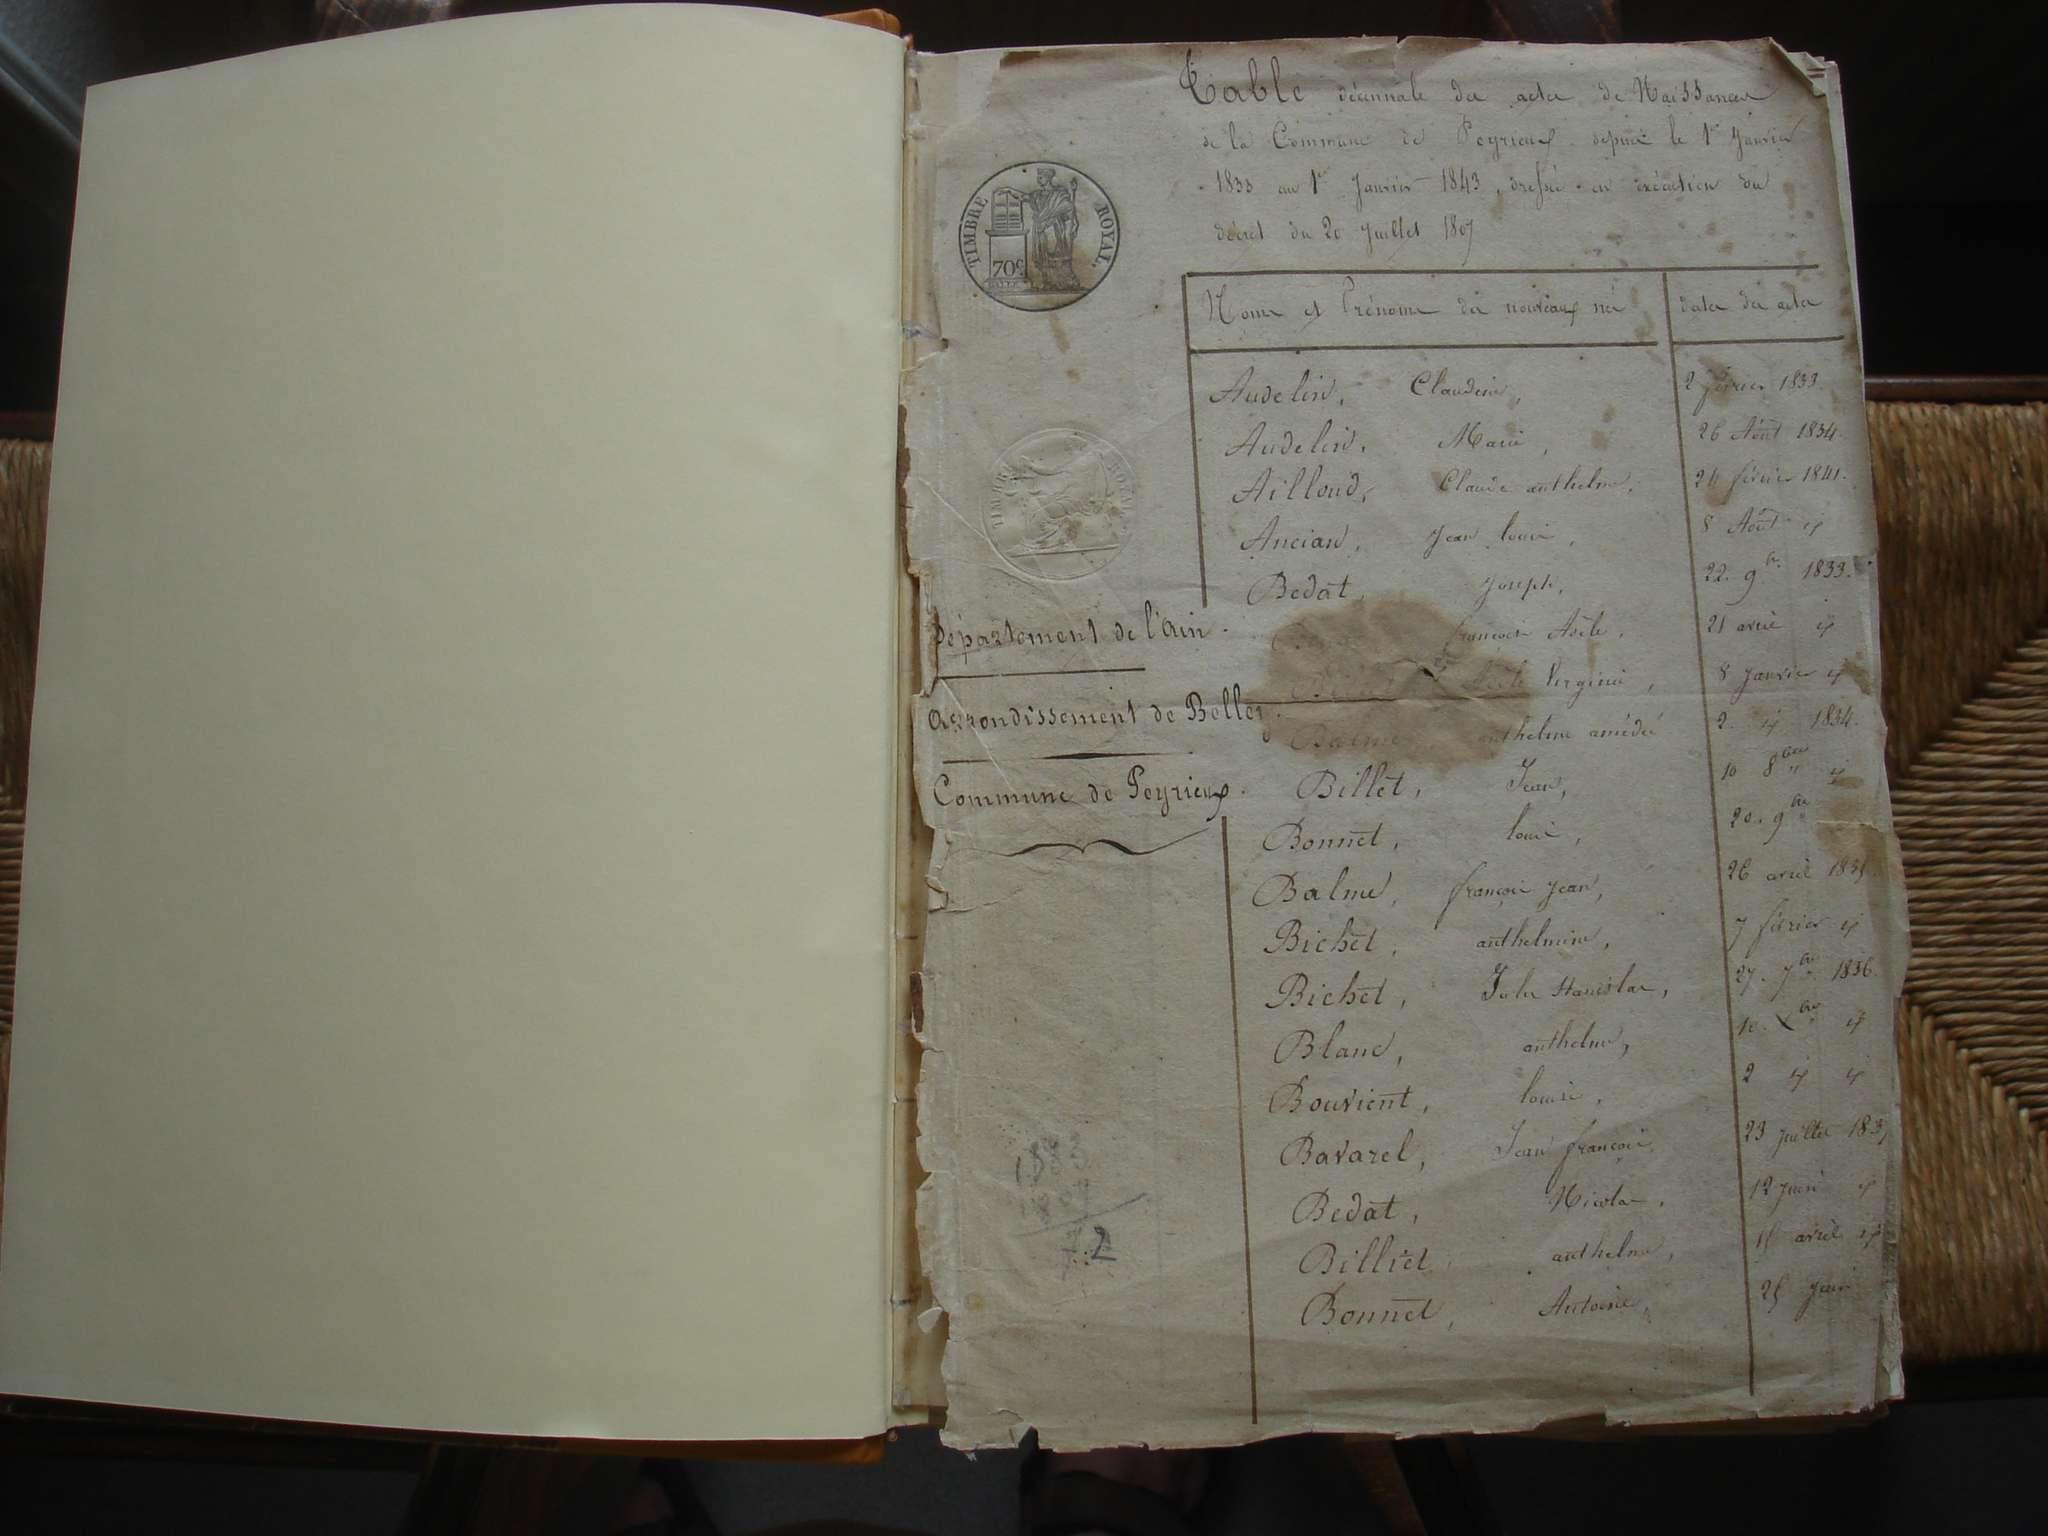 Table décennale des actes de Naissances
de la Commune de Peyrieux depuis le 1er Janvier
1833 au 1er Janvier 1843, dressée en exécution du
décret du 20 Juillet 1807
TIMBRE ROYAL
70c
TIMBRE ROYAL
Département de l'Ain.
Arrondissement de Belley.
Commune de Peyrieux.
Noms et Prénoms des nouveaux nés dates des actes
Audelin, Claudine, 2 février 1833.
Audelin, Marie, 26 Août 1834.
Ailloud, Claude anthelme, 24 février 1841.
Ancian, Jean louis, 8 Août id
Bedat, Joseph, 22. 9bre 1833.
françois 21 avril id
Virginie, 8 Janvier id
Balme, anthelme amédé 2. id 1834.
Billet, Jean, 10 8bre id
Bonnet, louis, 20. 9bre
Balme, françois Jean, 26 avril
Bichet, anthelmine, 7 février id
Bichet, Jules Stanislas, 27. 7bre 1836.
Blanc, anthelme, 10. Xbre id
Bouvient, louise, 2 id id
Bavarel, Jean françois, 23 Juillet
Bedat, Nicolas, 12 Juin id
Billiet, anthelme, avril id
Bonnet, Antoine, 25 Juin
2